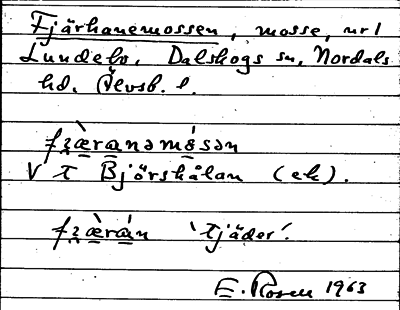 Fjärhanemossen, mosse, nr 1
Lundebo, Dalskogs sn, Nordals
hd, Älvsb. l.
fzæ̀ranəmósən
V t Björskålan (ek).
fzæ̀rán 'tjäder'.
E. Rosen 1963